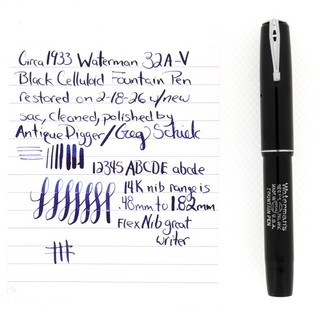 Circa 1933 Waterman 32A-V
Black Celluloid Fountain Pen
restored on 2-18-26 w/new
sac, cleaned, polished by
AntiqueDigger/Greg Schiek
12345 ABCDE abcde
14K nib range is
.48mm to 1.82mm
FlexNib great
writer
Waterman's
FOUNTAIN PEN